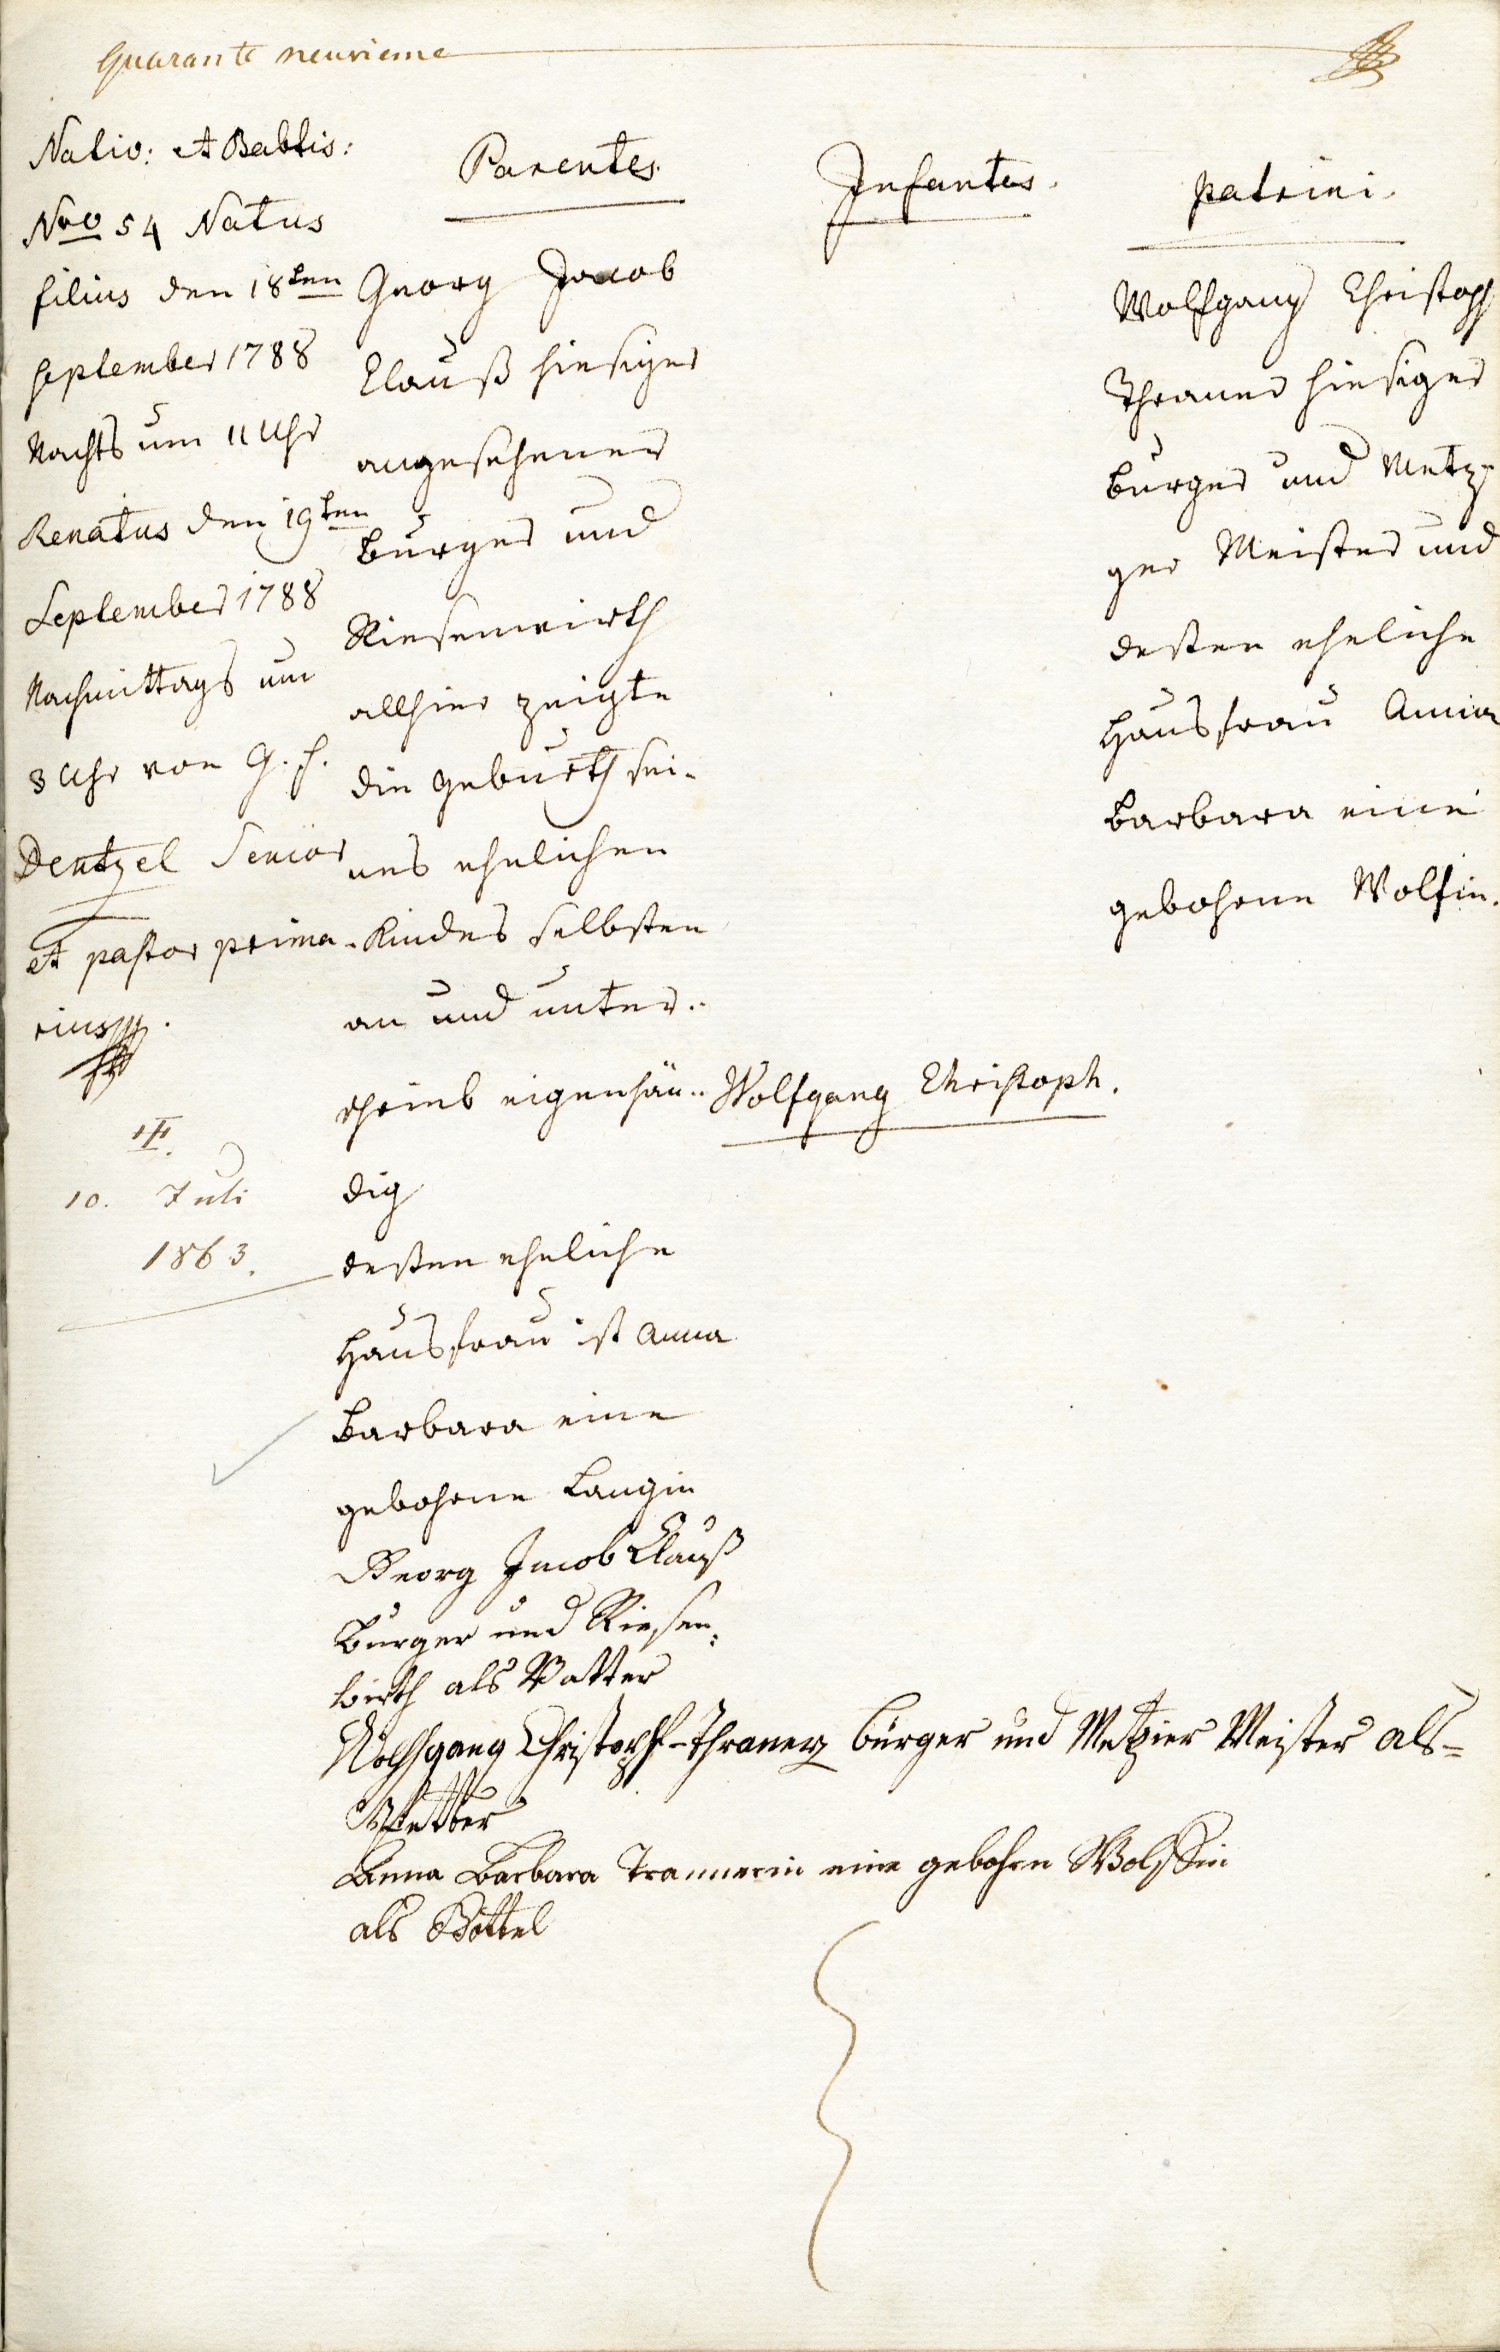 Quarante neuvieme
Nativ: et Babtis:
Nro 54 Natus
filius den 18ten
September 1788
Nachts um 11 Uhr
Renatus den 19ten
September 1788
Nachmittags um
3 Uhr von G. H.
Dentzel Senior
et pastor prima-
rius
10. Juli
1863.
Parentes.
Georg Jacob
Clauß hiesiger
angesehener
Burger und
Riesenwirth
allhier zeigte
die Geburth sei-
nes ehelichen
Kindes selbsten
an und unter-
schrieb eigenhän-
dig
dessen eheliche
Hausfrau ist Anna
Barbara eine
gebohrne Langin
Georg Jacob Clauß
Burger und Riesen-
wirth als Vatter
Infantes.
Wolfgang Christoph.
patrini.
Wolfgang Christoph
Thraner hiesiger
Burger und Metz-
ger Meister und
dessen eheliche
Hausfrau Anna
Barbara eine
gebohrne Wolfin.
Wolffgang Christopff Thraner burger und Metzier Meister als
Pfetter
Anna Barbara Trannerin eine gebohrn Wolffin
als Göttel